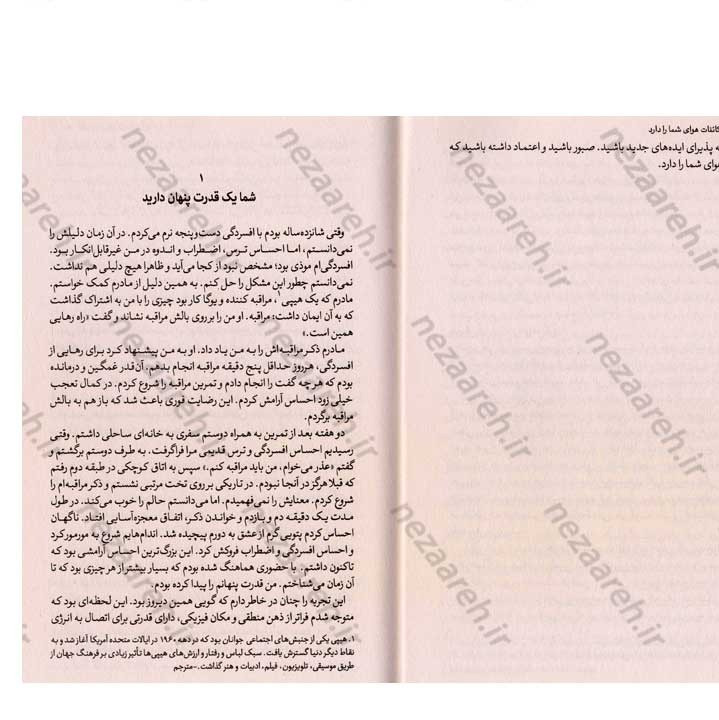 کائنات هوای شما را دارد
به پذیرای ایده‌های جدید باشید. صبور باشید و اعتماد داشته باشید که
هوای شما را دارد.
۱
شما یک قدرت پنهان دارید
وقتی شانزده‌ساله بودم با افسردگی دست‌وپنجه نرم می‌کردم. در آن زمان دلیلش را
نمی‌دانستم، اما احساس ترس، اضطراب و اندوه در من غیرقابل‌انکار بود.
افسردگی‌ام موذی بود؛ مشخص نبود از کجا می‌آید و ظاهرا هیچ دلیلی هم نداشت.
نمی‌دانستم چطور این مشکل را حل کنم. به همین دلیل از مادرم کمک خواستم.
مادرم که یک هیپی۱، مراقبه کننده و یوگا کار بود چیزی را با من به اشتراک گذاشت
که به آن ایمان داشت: مراقبه. او من را بر روی بالش مراقبه نشاند و گفت «راه رهایی
همین است.»
مادرم ذکر مراقبه‌اش را به من یاد داد. او به من پیشنهاد کرد برای رهایی از
افسردگی، هرروز حداقل پنج دقیقه مراقبه انجام بدهم. آن‌قدر غمگین و درمانده
بودم که هر چه گفت را انجام دادم و تمرین مراقبه را شروع کردم. در کمال تعجب
خیلی زود احساس آرامش کردم. این رضایت فوری باعث شد که باز هم به بالش
مراقبه برگردم.
دو هفته بعد از تمرین به همراه دوستم سفری به خانه‌ای ساحلی داشتم. وقتی
رسیدیم احساس افسردگی و ترس قدیمی مرا فراگرفت. به طرف دوستم برگشتم و
گفتم «عذر می‌خوام، من باید مراقبه کنم.» سپس به اتاق کوچکی در طبقه دوم رفتم
که قبلا هرگز در آنجا نبودم. در تاریکی بر روی تخت مرتبی نشستم و ذکر مراقبه‌ام را
شروع کردم. معنایش را نمی‌فهمیدم. اما می‌دانستم حالم را خوب می‌کند. در طول
مدت یک دقیقه دم و بازدم و خواندن ذکر، اتفاق معجزه‌آسایی افتاد. ناگهان
احساس کردم پتویی گرم از عشق به دورم پیچیده شد. اندام‌هایم شروع به مورمور کرد
و احساس افسردگی و اضطراب فروکش کرد. این بزرگ‌ترین احساس آرامشی بود که
تاکنون داشتم. با حضوری هماهنگ شده بودم که بسیار بیشتر از هر چیزی بود که تا
آن زمان می‌شناختم. من قدرت پنهانم را پیدا کرده بودم.
این تجربه را چنان در خاطر دارم که گویی همین دیروز بود. این لحظه‌ای بود که
متوجه شدم فراتر از ذهن منطقی و مکان فیزیکی، دارای قدرتی برای اتصال به انرژی
۱. هیپی یکی از جنبش‌های اجتماعی جوانان بود که در دهه ۱۹۶۰ در ایالات متحده آمریکا آغاز شد و به
نقاط دیگر دنیا گسترش یافت. سبک لباس و رفتار و ارزش‌های هیپی‌ها تأثیر زیادی بر فرهنگ جهان از
طریق موسیقی، تلویزیون، فیلم، ادبیات و هنر گذاشت.-مترجم
nezaareh.ir
nezaareh.ir
nezaareh.ir
nezaareh.ir
nezaareh.ir
nezaareh.ir
nezaareh.ir
nezaareh.ir
nezaareh.ir
nezaareh.ir
nezaareh.ir